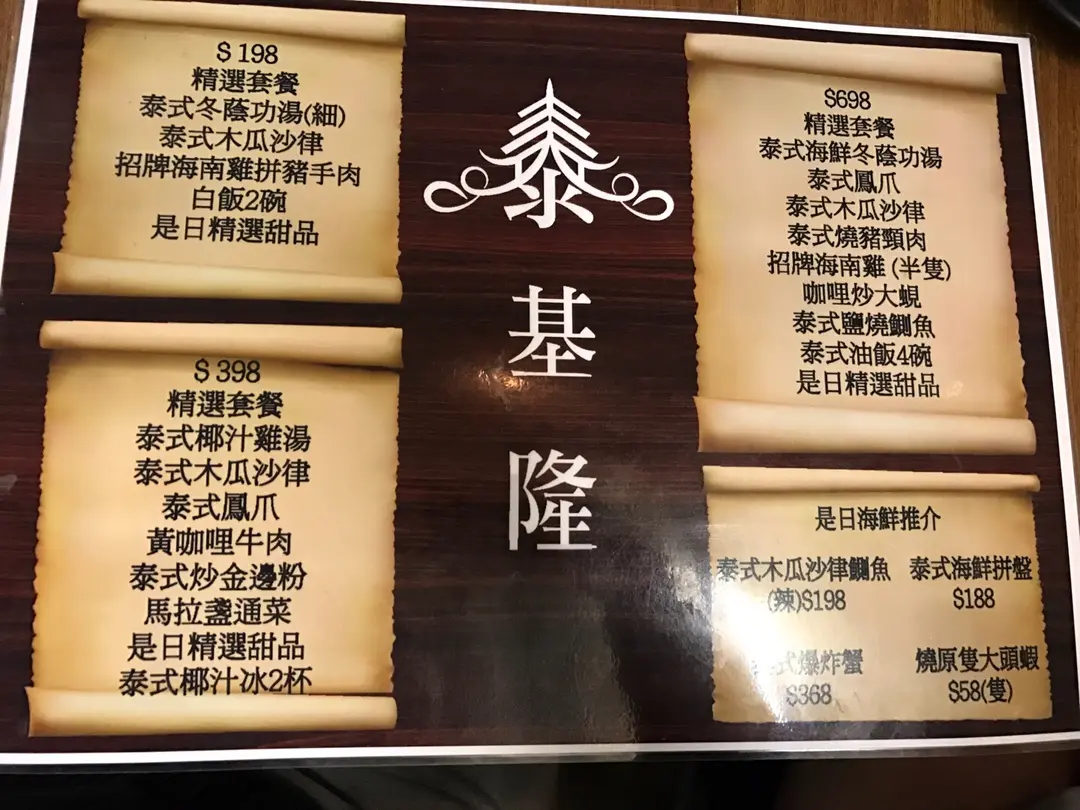 $ 198
精選套餐
泰式冬蔭功湯(細)
泰式木瓜沙律
招牌海南雞拼豬手肉
白飯2碗
是日精選甜品
$ 398
精選套餐
泰式椰汁雞湯
泰式木瓜沙律
泰式鳳爪
黃咖哩牛肉
泰式炒金邊粉
馬拉盞通菜
是日精選甜品
泰式椰汁冰2杯
泰
基
隆
$698
精選套餐
泰式海鮮冬蔭功湯
泰式鳳爪
泰式木瓜沙律
泰式燒豬頸肉
招牌海南雞 (半隻)
咖哩炒大蜆
泰式鹽燒鰂魚
泰式油飯4碗
是日精選甜品
是日海鮮推介
泰式木瓜沙律鰂魚
(辣)$198
泰式海鮮拼盤
$188
式爆炸蟹
$368
燒原隻大頭蝦
$58(隻)